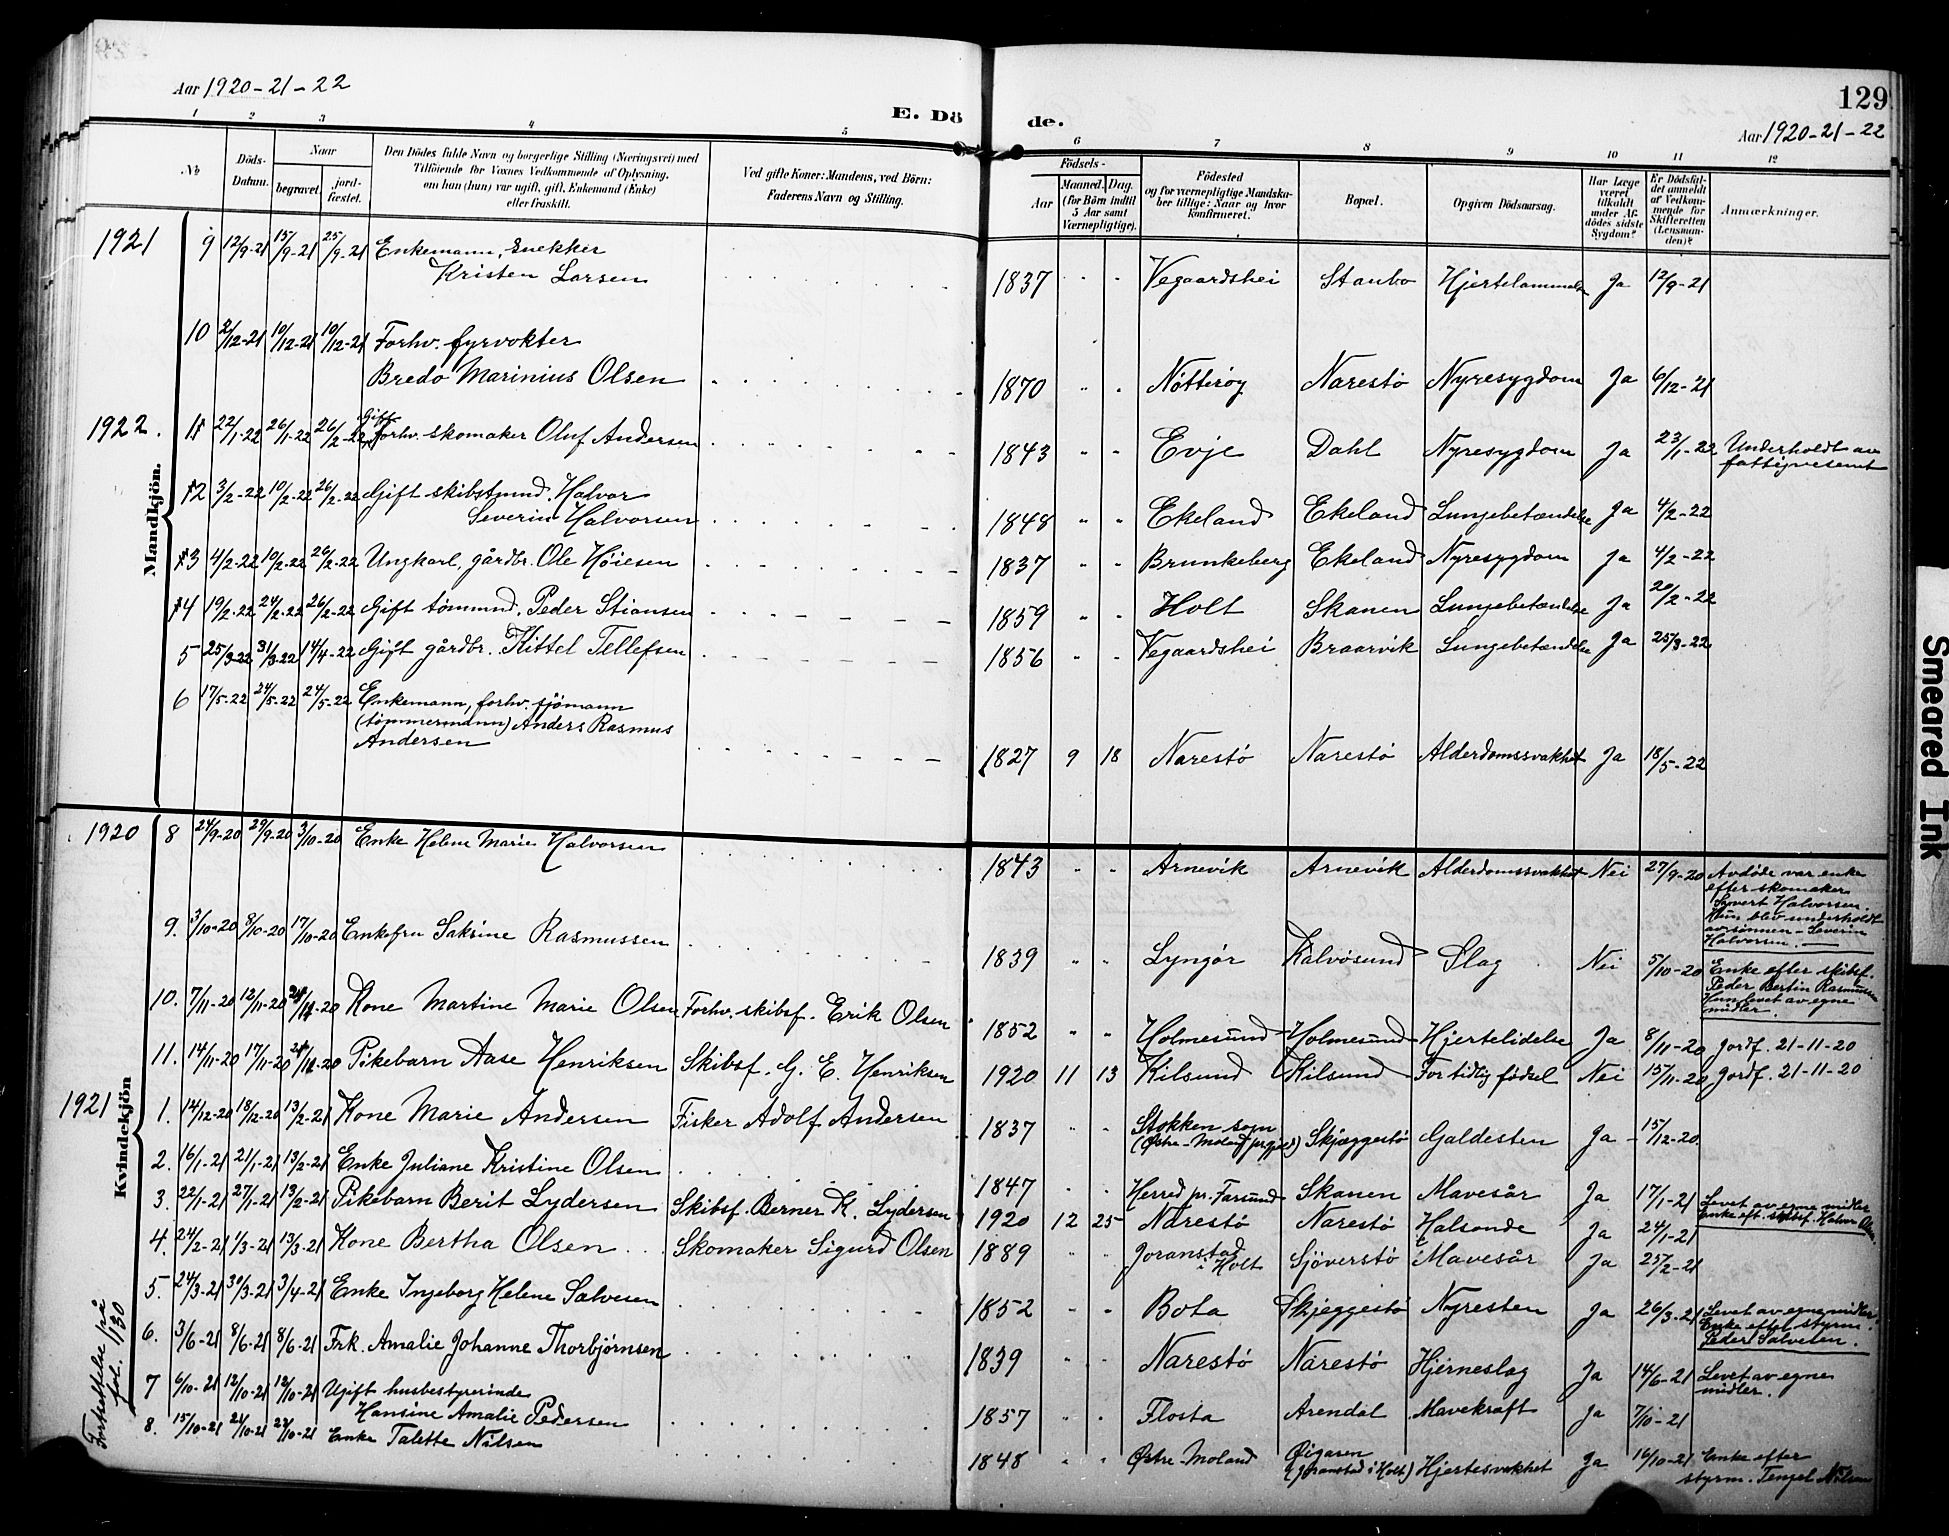 Aar 1920-21-22
E. Dö
de.
129
Aar 1920-21-22
1 2 3 4 5 6 7 8 9 10 11 12
No
Döds-
Datum.
Naar
begravet.
jord-
fæstet.
Den Dödes fulde Navn og borgerlige Stilling (Næringsvei) med
Tilföiende for Voxnes Vedkommende af Oplysning,
om han (hun) var ugift, gift, Enkemand (Enke)
eller fraskilt.
Ved gifte Koner: Mandens, ved Börn:
Faderens Navn og Stilling.
Födsels-
Aar
Maaned. Dag.
(for Börn indtil
5 Aar samt
Værnepligtige).
Födested
og for værnepligtige Mandska-
ber tillige: Naar og hvor
konfirmeret.
Bopæl.
Opgiven Dödsaarsag.
Har Læge
været
tilkaldt
under Af-
dödes sidste
Sygdom?
Er Dödsfal-
det anmeldt
af Vedkom-
mende for
Skifteretten
(Lensman-
den)?
Anmærkninger.
Mandkjön.
1921 9 12/9-21 15/9-21 25/9-21 Enkemann, snekker
Kristen Larsen 1837 Vegaardshei Staubo Hjertelammelse Ja 12/9-21
10 2/12-21 10/12-21 10/12-21 Forhv. fyrvokter
Bredo Marinius Olsen 1870 Nøtterøy Narestø Nyresygdom Ja 6/12-21
1922. 1 22/1-22 26/1-22 26/2-22 Gift forhv. skomaker Oluf Andersen 1843 Evje Dahl Nyresygdom Ja 23/1-22 Underholdt av
fattigvesenet
2 3/2-22 10/2-22 26/2-22 Gift skibstmmd. Halvor
Severin Halvorsen 1848 Ekeland Ekeland Lungebetændelse Ja 4/2-22
3 4/2-22 10/2-22 26/2-22 Ungkarl, gårdbr. Ole Høiesen 1837 Brunkeberg Ekeland Nyresygdom Ja 4/2-22
4 19/2-22 24/2-22 26/2-22 Gift tømmmd. Peder Stiansen 1859 Holt Skanen Lungebetændelse Ja 20/2-22
5 25/3-22 31/3-22 14/4-22 Gift gårdbr. Kittel Tellefsen 1856 Vegaardshei Braarvik Lungebetændelse Ja 25/3-22
6 17/5-22 24/5-22 24/5-22 Enkemann, forhv. sjömann
(tømmermann) Anders Rasmus
Andersen 1827 9 18 Narestø Narestø Alderdomssvakhet Ja 18/5-22
Kvindekjön
1920 8 24/9-20 29/9-20 3/10-20 Enke Helene Marie Halvorsen 1843 Arnevik Arnevik Alderdomssvakhet Nei 27/9-20 Avdøde var enke
efter skomaker
Sivert Halvorsen.
Hun blev underholdt
av sønnen - Severin
Halvorsen.
9. 3/10-20 8/10-20 17/10-20 Enkefru Sakrine Rasmussen 1839 Lyngør Kalvösund Slag Nei 5/10-20 Enke efter skibsf.
Peder Bertin Rasmussen
Hun levet av egne
midler.
10. 7/11-20 12/11-20 21/11-20 Kone Martine Marie Olsen Forhv. skibsf. Erik Olsen 1852 Holmesund Holmesund Hjertelidelse Ja 8/11-20 Jordf. 21-11-20
11. 14/11-20 17/11-20 21/11-20 Pikebarn Aase Henriksen Skibsf. G. E. Henriksen 1920 11 13 Kilsund Kilsund For tidlig födsel Nei 15/11-20 Jordf. 21-11-20
1921 1. 14/12-20 18/12-20 13/2-21 Kone Marie Andersen Fisker Adolf Andersen 1837 Stokken sogn
(Østre-Moland prgjeld) Skjæggestø Galdesten Ja 15/12-20
2. 16/1-21 21/1-21 13/2-21 Enke Juliane Kristine Olsen 1847 Herred pr. Farsund Skanen Mavesår Ja 17/1-21 Levet av egne midler
enke eft. skibsf. Halvor Olsen.
3. 22/1-21 27/1-21 13/2-21 Pikebarn Berit Lydersen Skibsf. Berner K. Lydersen 1920 12 25 Narestø Narestø Halsonde Ja 24/1-21
4. 24/2-21 1/3-21 13/3-21 Kone Bertha Olsen Skomaker Sigurd Olsen 1889 Joranstad
i Holt Sjöverstø Mavesår Ja 25/2-21
5. 24/3-21 30/3-21 3/4-21 Enke Ingeborg Helene Salvesen 1852 Bota Skjeggestø Nyresten Ja 26/3-21 Levet av egne midler.
Enke efter styrm.
Peder Salvesen.
6. 3/6-21 8/6-21 8/6-21 Frk. Amalie Johanne Thorbjørnsen 1839 Narestø Narestø Hjerneslag Ja 14/6-21 Levet av egne
midler.
7 6/10-21 12/10-21 12/10-21 Ugift husbestyrerinde
Hansine Amalie Pedersen 1857 Flosta Arendal Mavekræft Ja 7/10-21
8. 15/10-21 21/10-21 23/10-21 Enke Talette Nilsen 1848 Østre-Moland Øigaren
(Joranstad i Holt) Hjertesvakhet Ja 16/10-21 Enke efter
styrm. Tengel Nilsen
Fortsettelse på
fol. 130
Smeared Ink